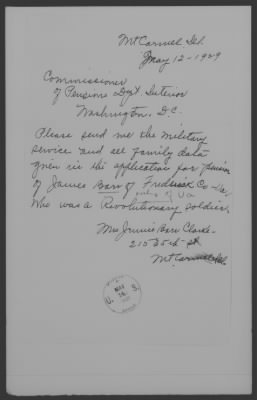 Mt Carmel Ill.
May 12-1929
Commissioner
of Pensions Dept Interior
Washington, D.C.
Please send me the military
service and all family data
given in the application for pension
of James Barr of Fredrick Co
of Va
Who was a Revolutionary soldier.
Mrs Jennie Barr Clark-
215 W 5th St
Mt Carmel Ill.
MAY
U. S.